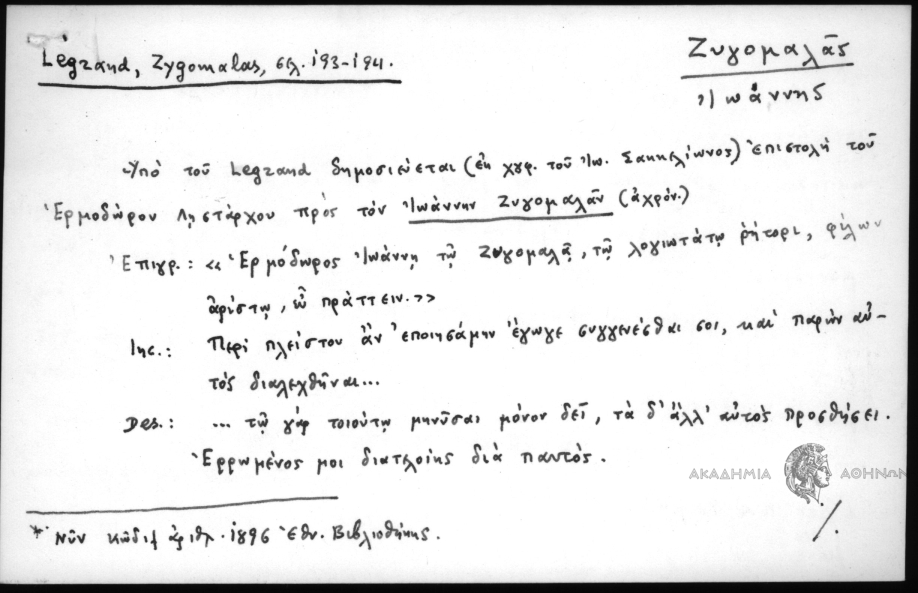 Legrand, Zygomalas, σελ. 193-194.
Ζυγομαλᾶς
Ἰωάννης
Ὑπὸ τοῦ Legrand δημοσιεύεται (ἐκ χγφ. τοῦ Ἰω. Σακκελίωνος) ἐπιστολὴ τοῦ
Ἑρμοδώρου Λῃστάρχου πρὸς τὸν Ἰωάννην Ζυγομαλᾶν (ἀχρόν.)
Ἐπιγρ.: «Ἑρμόδωρος Ἰωάννῃ τῷ Ζυγομαλᾷ, τῷ λογιωτάτῳ ῥήτορι, φίλων
ἀρίστῳ, εὖ πράττειν.»
Inc.: Περὶ πλείστου ἂν ἐποιησάμην ἔγωγε συγγενέσθαι σοι, καὶ παρὼν αὐ-
τὸς διαλεχθῆναι...
Des.: ... τῷ γὰρ τοιούτῳ μηνῦσαι μόνον δεῖ, τὰ δ' ἄλλ' αὐτὸς προσθήσει.
Ἐρρωμένος μοι διατελοίης διὰ παντός.
ΑΚΑΔΗΜΙΑ ΑΘΗΝΩΝ
./.
* Νῦν κῶδιξ ἀριθμ. 1896 Ἐθν. Βιβλιοθήκης.